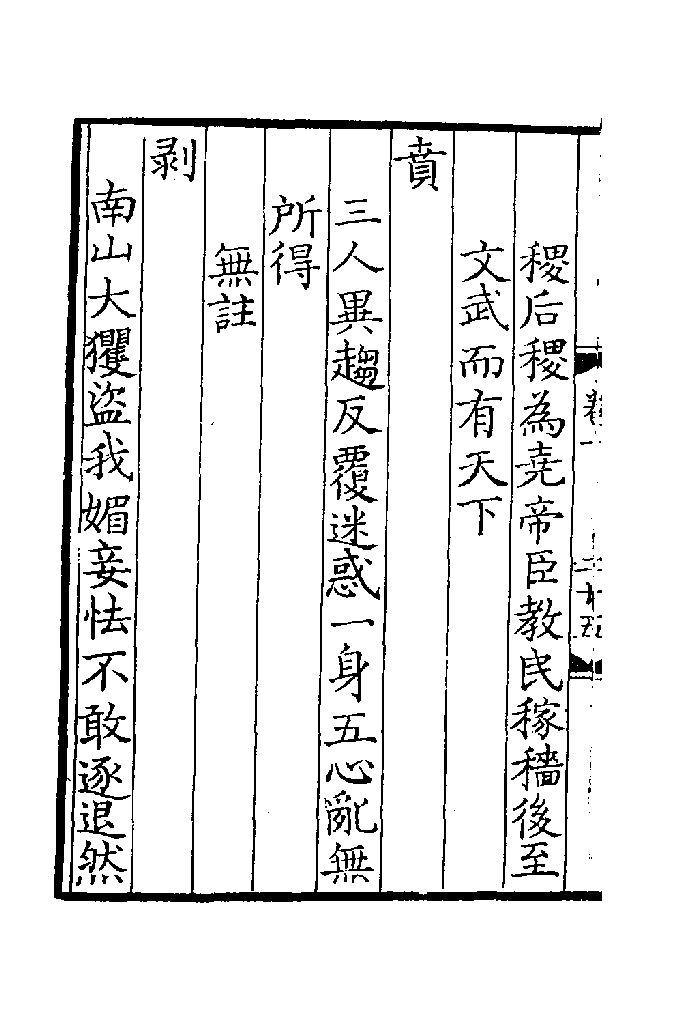 稷后稷為堯帝臣教民稼穡後至
文武而有天下
賁
三人異趨反覆迷惑一身五心亂無
所得
無註
剥
南山大玃盜我媚妾怯不敢逐退然